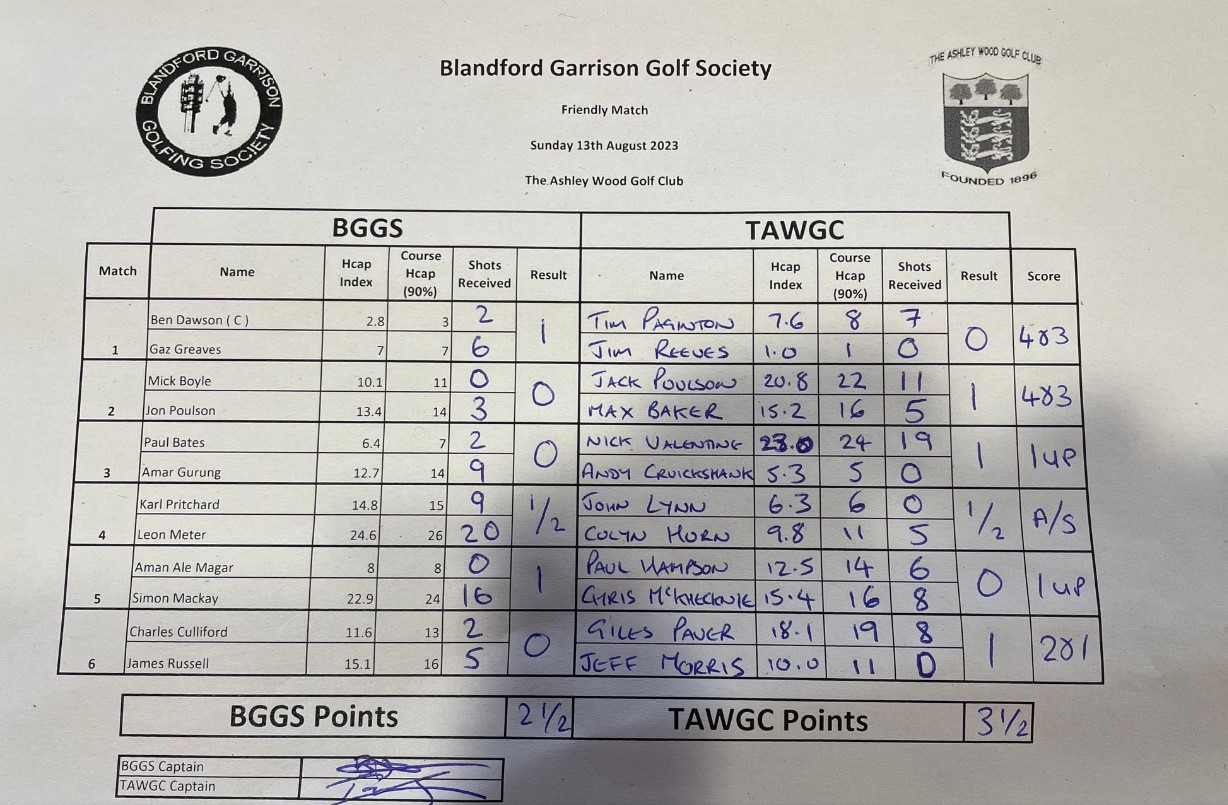 BLANDFORD GARRISON GOLFING SOCIETY
Blandford Garrison Golf Society
THE ASHLEY WOOD GOLF CLUB
FOUNDED 1896
Friendly Match
Sunday 13th August 2023
The Ashley Wood Golf Club
BGGS TAWGC
Match Name Hcap Index Course Hcap (90%) Shots Received Result Name Hcap Index Course Hcap (90%) Shots Received Result Score
1 Ben Dawson ( C ) 2.8 3 2 1 TIM PAGINTON 7.6 8 7 0 4&3
Gaz Greaves 7 7 6 JIM REEVES 1.0 1 0
2 Mick Boyle 10.1 11 0 0 JACK POULSON 20.8 22 11 1 4&3
Jon Poulson 13.4 14 3 MAX BAKER 15.2 16 5
3 Paul Bates 6.4 7 2 0 NICK VALENTINE 23.0 24 19 1 1UP
Amar Gurung 12.7 14 9 ANDY CRUICKSHANK 5.3 5 0
4 Karl Pritchard 14.8 15 9 1/2 JOHN LYNN 6.3 6 0 1/2 A/S
Leon Meter 24.6 26 20 COLYN HORN 9.8 11 5
5 Aman Ale Magar 8 8 0 1 PAUL HAMPSON 12.5 14 6 0 1UP
Simon Mackay 22.9 24 16 CHRIS 15.4 16 8
6 Charles Culliford 11.6 13 2 0 GILES PAVER 18.1 19 8 1 2&1
James Russell 15.1 16 5 JEFF MORRIS 10.0 11 0
BGGS Points 2 1/2 TAWGC Points 3 1/2
BGGS Captain
TAWGC Captain